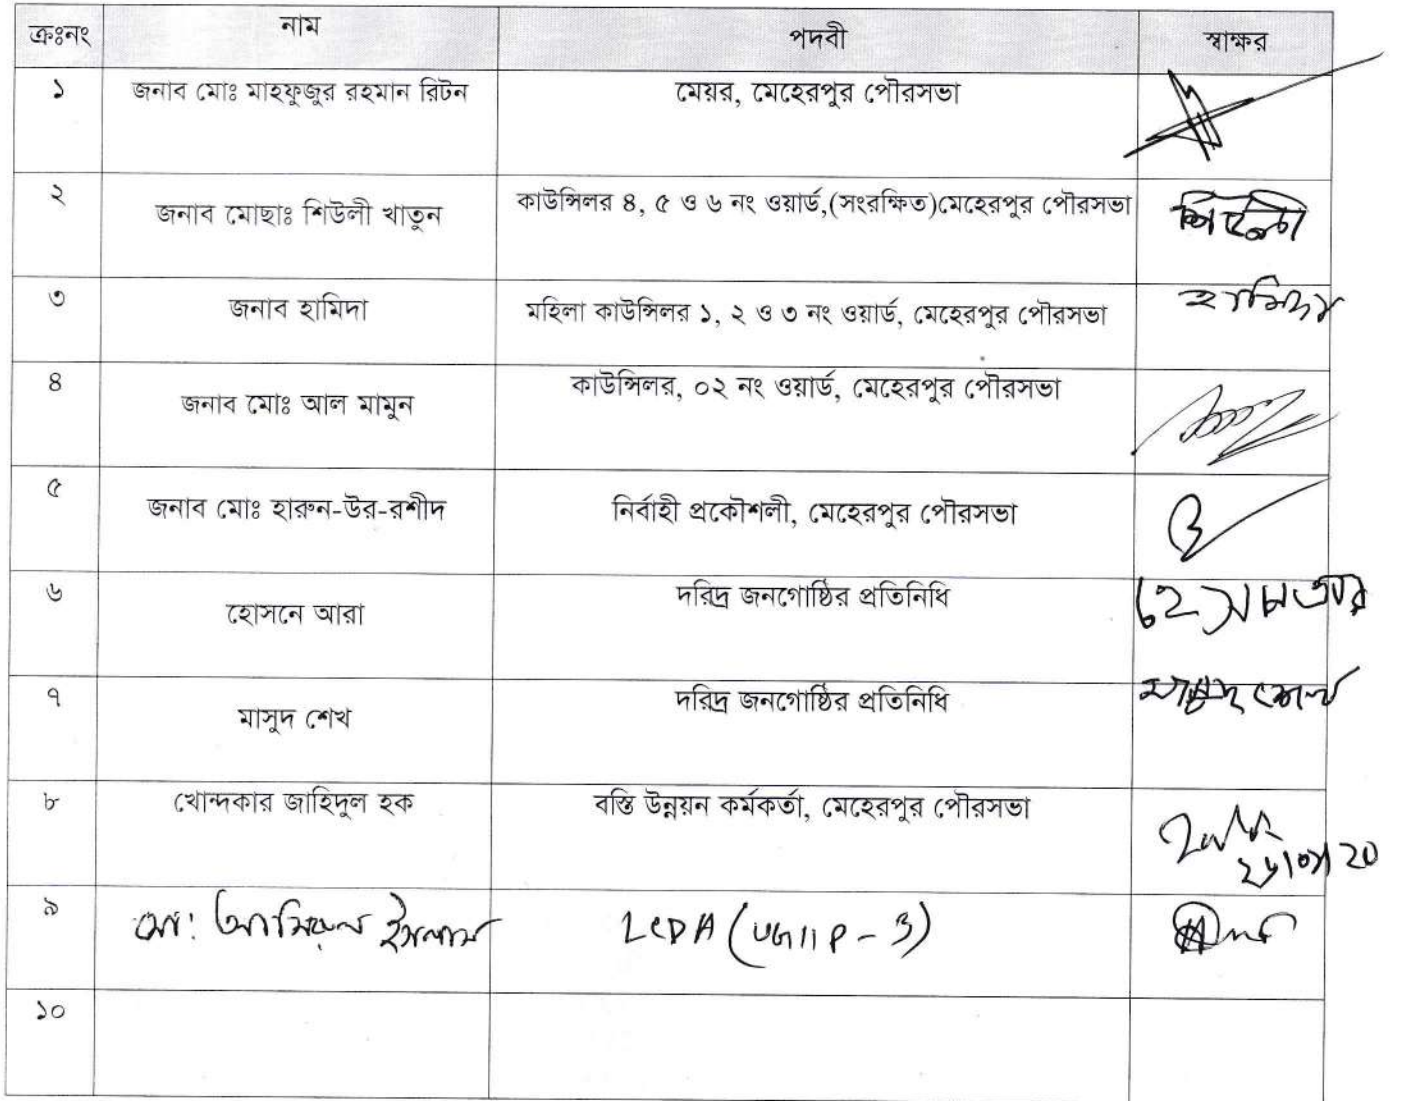 ক্রঃনং নাম পদবী স্বাক্ষর
১ জনাব মোঃ মাহফুজুর রহমান রিটন মেয়র, মেহেরপুর পৌরসভা
২ জনাব মোছাঃ শিউলী খাতুন কাউন্সিলর ৪, ৫ ও ৬ নং ওয়ার্ড,(সংরক্ষিত)মেহেরপুর পৌরসভা শিউলী
৩ জনাব হামিদা মহিলা কাউন্সিলর ১, ২ ও ৩ নং ওয়ার্ড, মেহেরপুর পৌরসভা হামিদা
৪ জনাব মোঃ আল মামুন কাউন্সিলর, ০২ নং ওয়ার্ড, মেহেরপুর পৌরসভা
৫ জনাব মোঃ হারুন-উর-রশীদ নির্বাহী প্রকৌশলী, মেহেরপুর পৌরসভা
৬ হোসনে আরা দরিদ্র জনগোষ্ঠির প্রতিনিধি
৭ মাসুদ শেখ দরিদ্র জনগোষ্ঠির প্রতিনিধি মাসুদ শেখ
৮ খোন্দকার জাহিদুল হক বস্তি উন্নয়ন কর্মকর্তা, মেহেরপুর পৌরসভা
৯ মো: আমিরুল ইসলাম LCDA (UGIIP-3)
১০